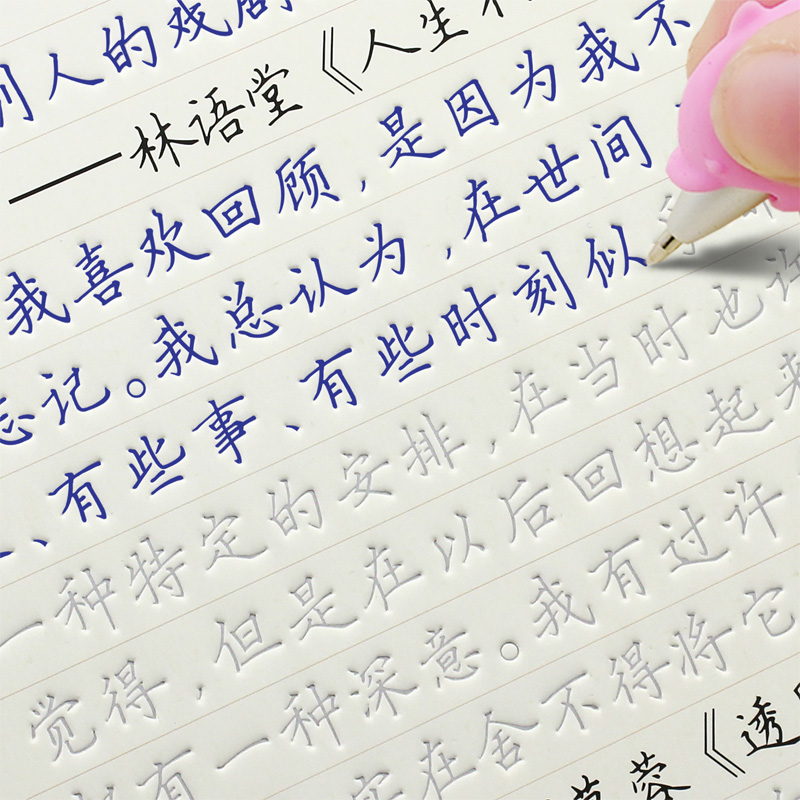 别人的戏剧
——林语堂《人生不
我喜欢回顾,是因为我不
忘记。我总认为,在世间
、有些事、有些时刻似
一种特定的安排,在当时也许
觉得,但是在以后回想起来
有一种深意。我有过许
实在舍不得将它
蓉《透